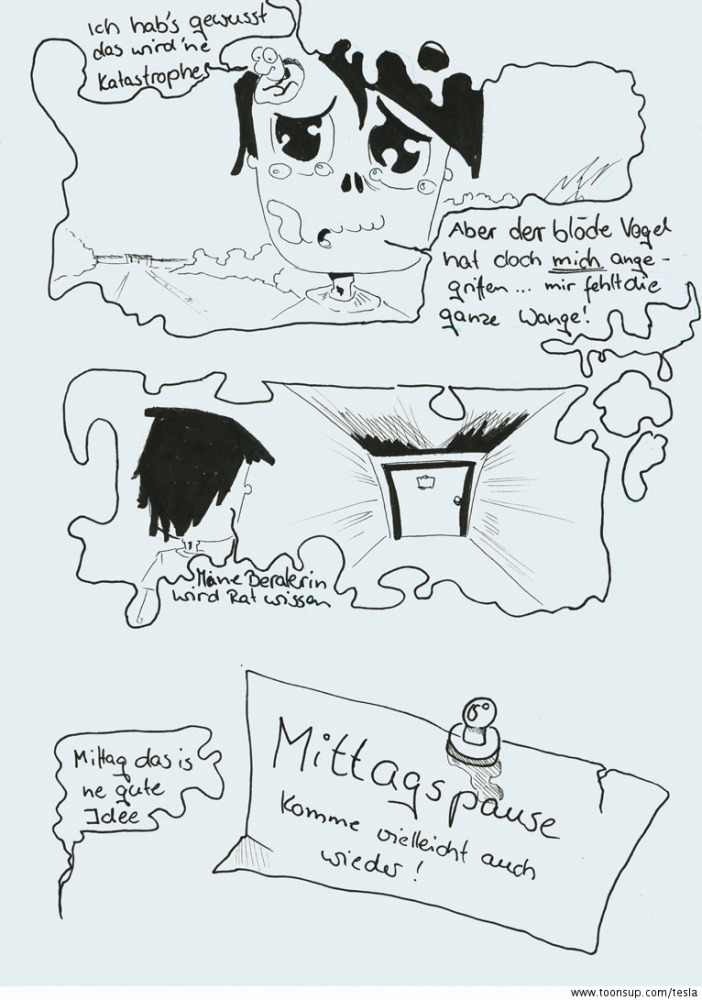 Ich hab's gewusst
das wird'ne
Katastrophe
Aber der blöde Vogel
hat doch mich ange-
griffen ... mir fehlt die
ganze Wange!
Meine Beraterin
wird Rat wissen
Mittag das is
ne gute
Idee
Mittagspause
Komme vielleicht auch
wieder!
www.toonsup.com/tesla